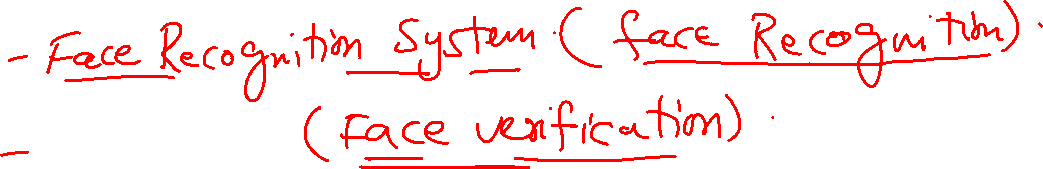 - Face Recognition System. (face Recognition).
(Face verification).
-